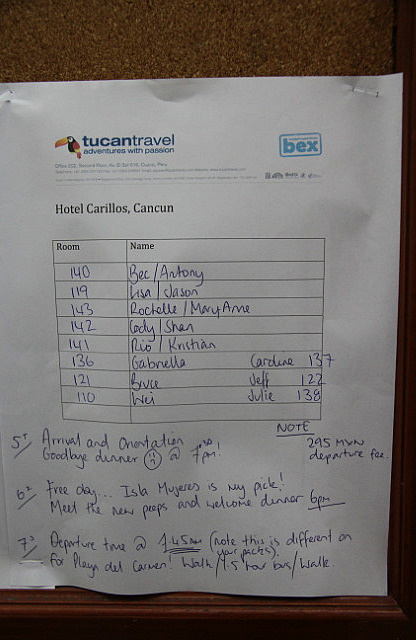 tucantravel
adventures with passion
bex
Office 202, Second Floor, Av. El Sol 616, Cusco, Peru
Hotel Carillos, Cancun
Room Name
140 Bec/Antony
119 Lisa/Jason
143 Rochelle/MaryAnne
142 Cody/Shan
141 Rio/Kristian
136 Gabriella Caroline 137
121 Bruce Jeff 122
110 Wei Julie 138
NOTE
295 MXN
departure fee.
5/ Arrival and Orientation
Goodbye dinner @ 7pm!
6/ Free day... Isla Mujeres is my pick!
Meet the new peeps and welcome dinner 6pm
7/ Departure time @ 7.45am (note this is different on
your packs).
For Playa del Carmen! Walk/1.5 hour bus/Walk.